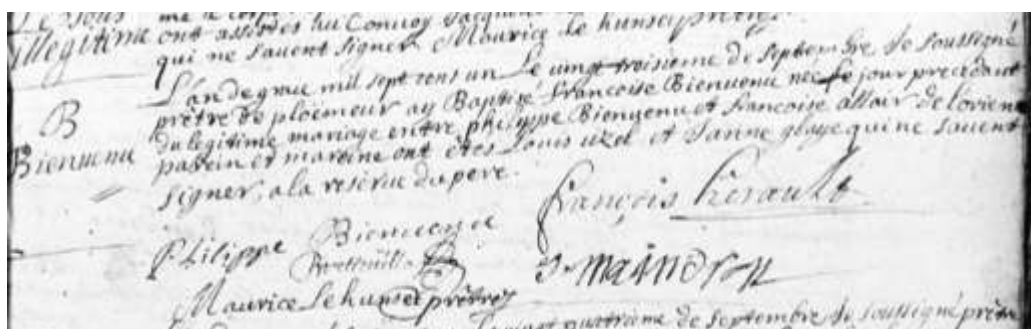 illegitime ont assistés au Convoy Jacques
qui ne sauent signer Maurice le hunsec prêtre
L'an de grace mil sept cens un Le vingt troisieme de septembre Je soussigné
prêtre de ploëmeur ay Baptizé francoise Bienuenu neé Le jour precedant
B
du legitime mariage entre philippe Bienuenu et francoise allair de l'orient
Bienuenu
parein et mareine ont étes Louis uzel et Janne glaye qui ne sauent
signer, a la reserue du pere.
françois herault
Philippe Bienuenu
Maurice Le hunsec prêtre
quatrieme de septembre Je soussigné prêtre